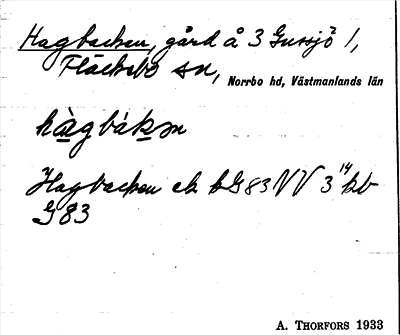 Hagbacken, gård å 3 Gussjö 1,
Fläckebo sn, Norrbo hd, Västmanlands län
hàgbákən
Hagbacken ek bG 83 NV 3 14 kb
G 83
A. THORFORS 1933